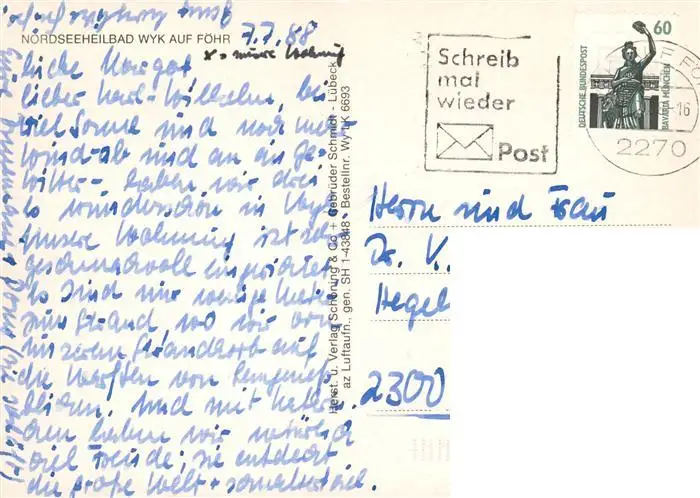 NORDSEEHEILBAD WYK AUF FÖHR
7.7.88
x = unsere Wohnung
liebe Margot
lieber Karl-Wilhelm, bei
viel Sonne und noch mehr
Wind - ab und an ein Ge-
witter - haben wir drei
es wunderschön in Wyk.
Unsere Wohnung ist sehr
geschmackvoll eingerichtet
es sind nur wenige Meter
zum Strand, wo wir von
unserem Strandkorb auf
die Warften von Langeneß
blicken. Und mit
chen haben wir wirklich
viel Freude; sie entdeckt
die große Welt +
Herst. u. Verlag Schöning & Co + Gebrüder Schmidt - Lübeck
az Luftaufn., gen. SH 1-43848 - Bestellnr. Wy LK 6693
Schreib
mal
wieder
Post
60
DEUTSCHE BUNDESPOST
BAVARIA MÜNCHEN
-16
2270
Herrn und Frau
Dr. K.
Hegel
2300